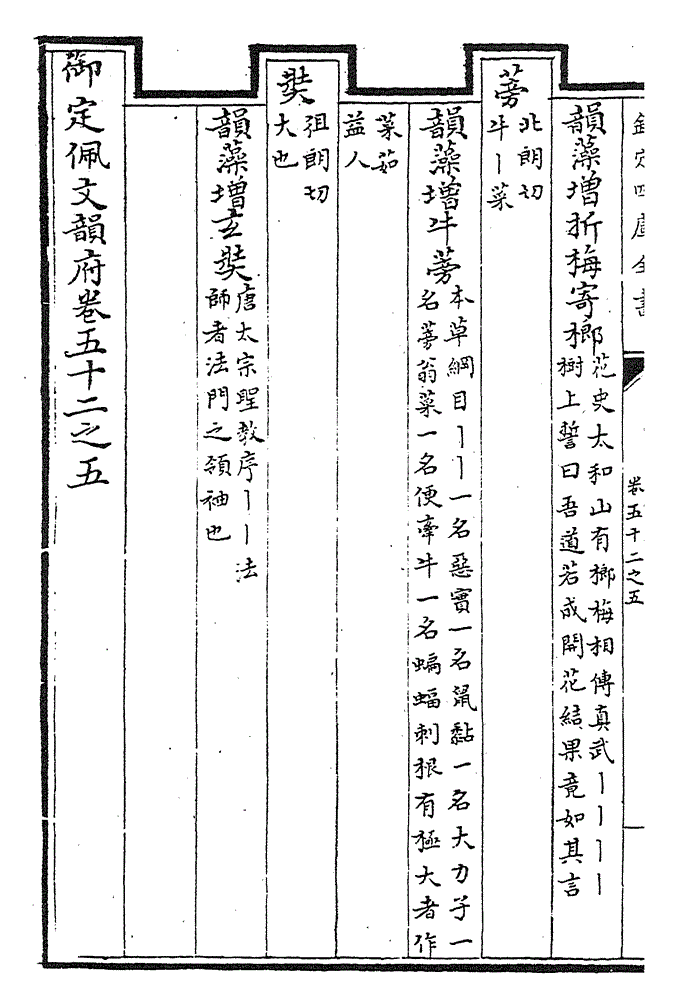 欽定四庫全書
卷五十二之五
韻藻增折梅寄榔
花史太和山有榔梅相傳真武丨丨丨丨
樹上誓曰吾道若成開花結果竟如其言
蒡
北朗切
牛丨菜
韻藻增牛蒡
本草綱目丨丨一名惡實一名鼠黏一名大力子一
名蒡翁菜一名便牽牛一名蝙蝠刺根有極大者作
菜茹
益人
奘
徂朗切
大也
韻藻增玄奘
唐太宗聖教序丨丨法
師者法門之領袖也
御定佩文韻府卷五十二之五